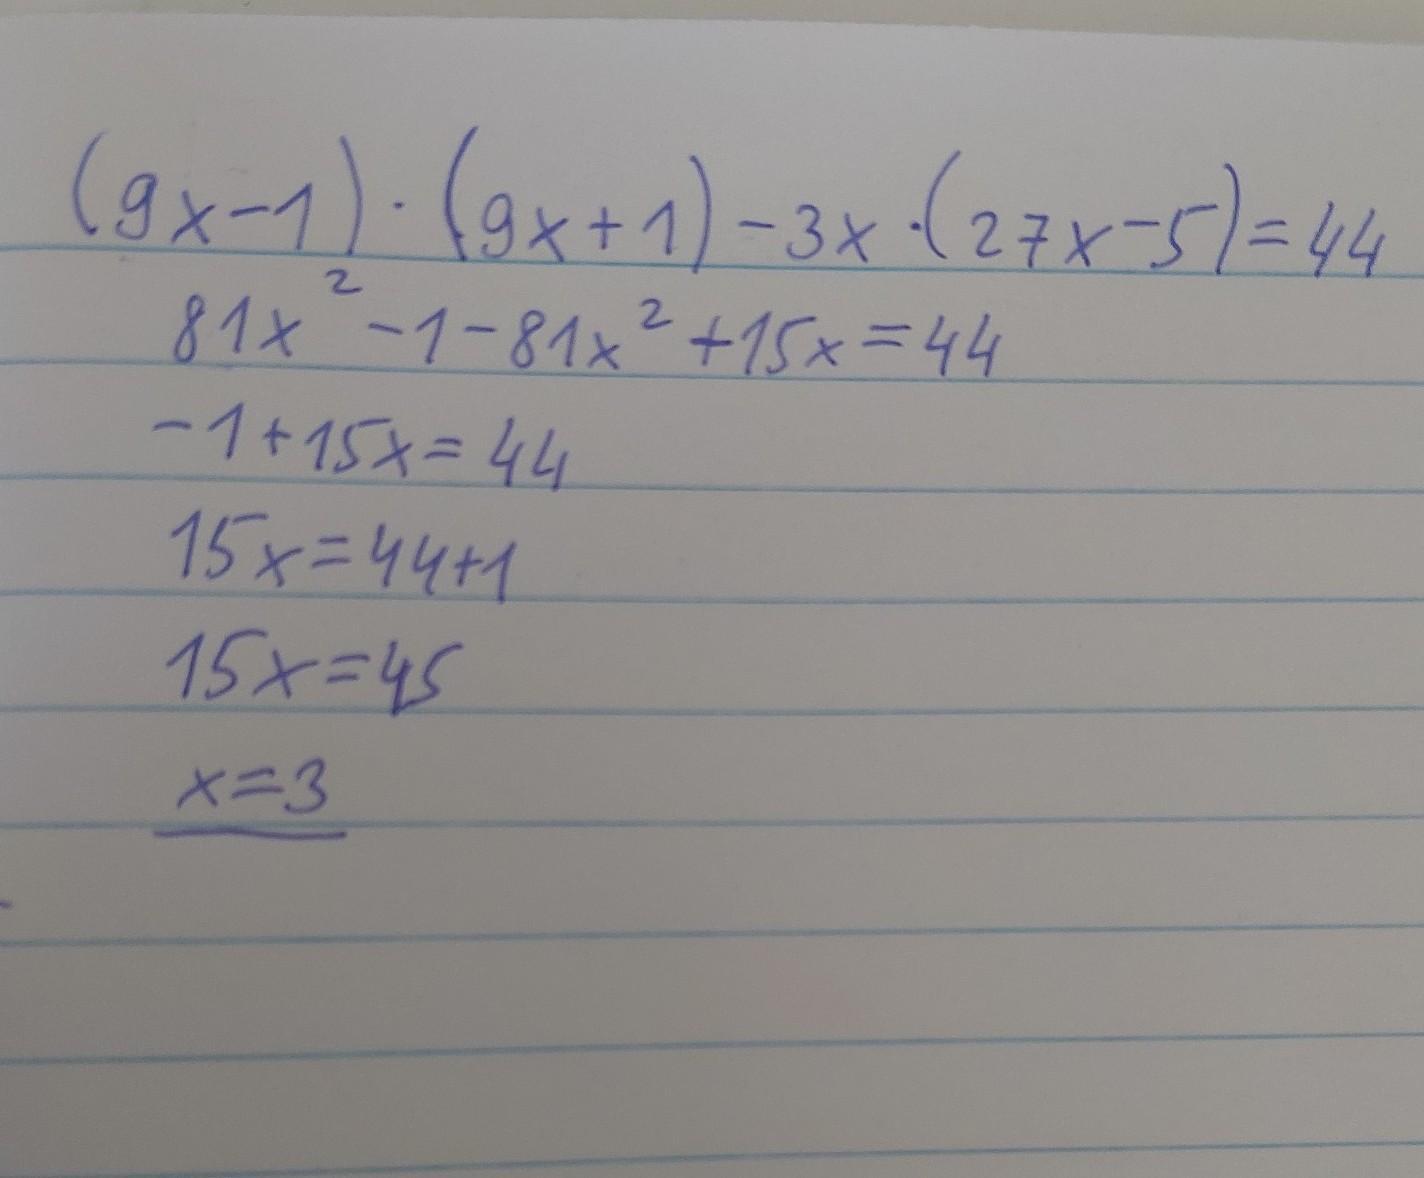 (9x-1)·(9x+1)-3x·(27x-5)=44
81x²-1-81x²+15x=44
-1+15x=44
15x=44+1
15x=45
x=3